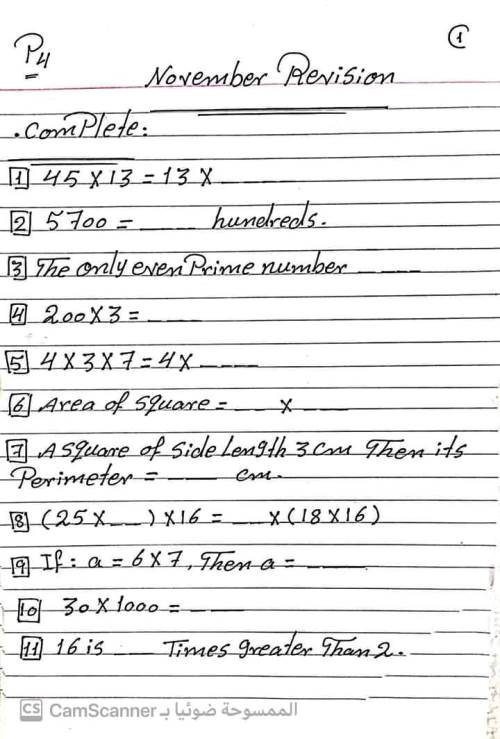 1
P4
November Revision
. Complete:
1 45 X 13 = 13 X ____
2 5700 = ____ hundreds.
3 The only even Prime number ____
4 200 X 3 = ____
5 4 X 3 X 7 = 4 X ____
6 Area of square = ___ X ___
7 A square of side Length 3 cm Then its
Perimeter = ____ cm.
8 (25 X ___) X 16 = ___ X (18 X 16)
9 If: a = 6 X 7, Then a = ____
10 30 X 1000 = ____
11 16 is ___ Times greater Than 2.
CS CamScanner الممسوحة ضوئيا بـ